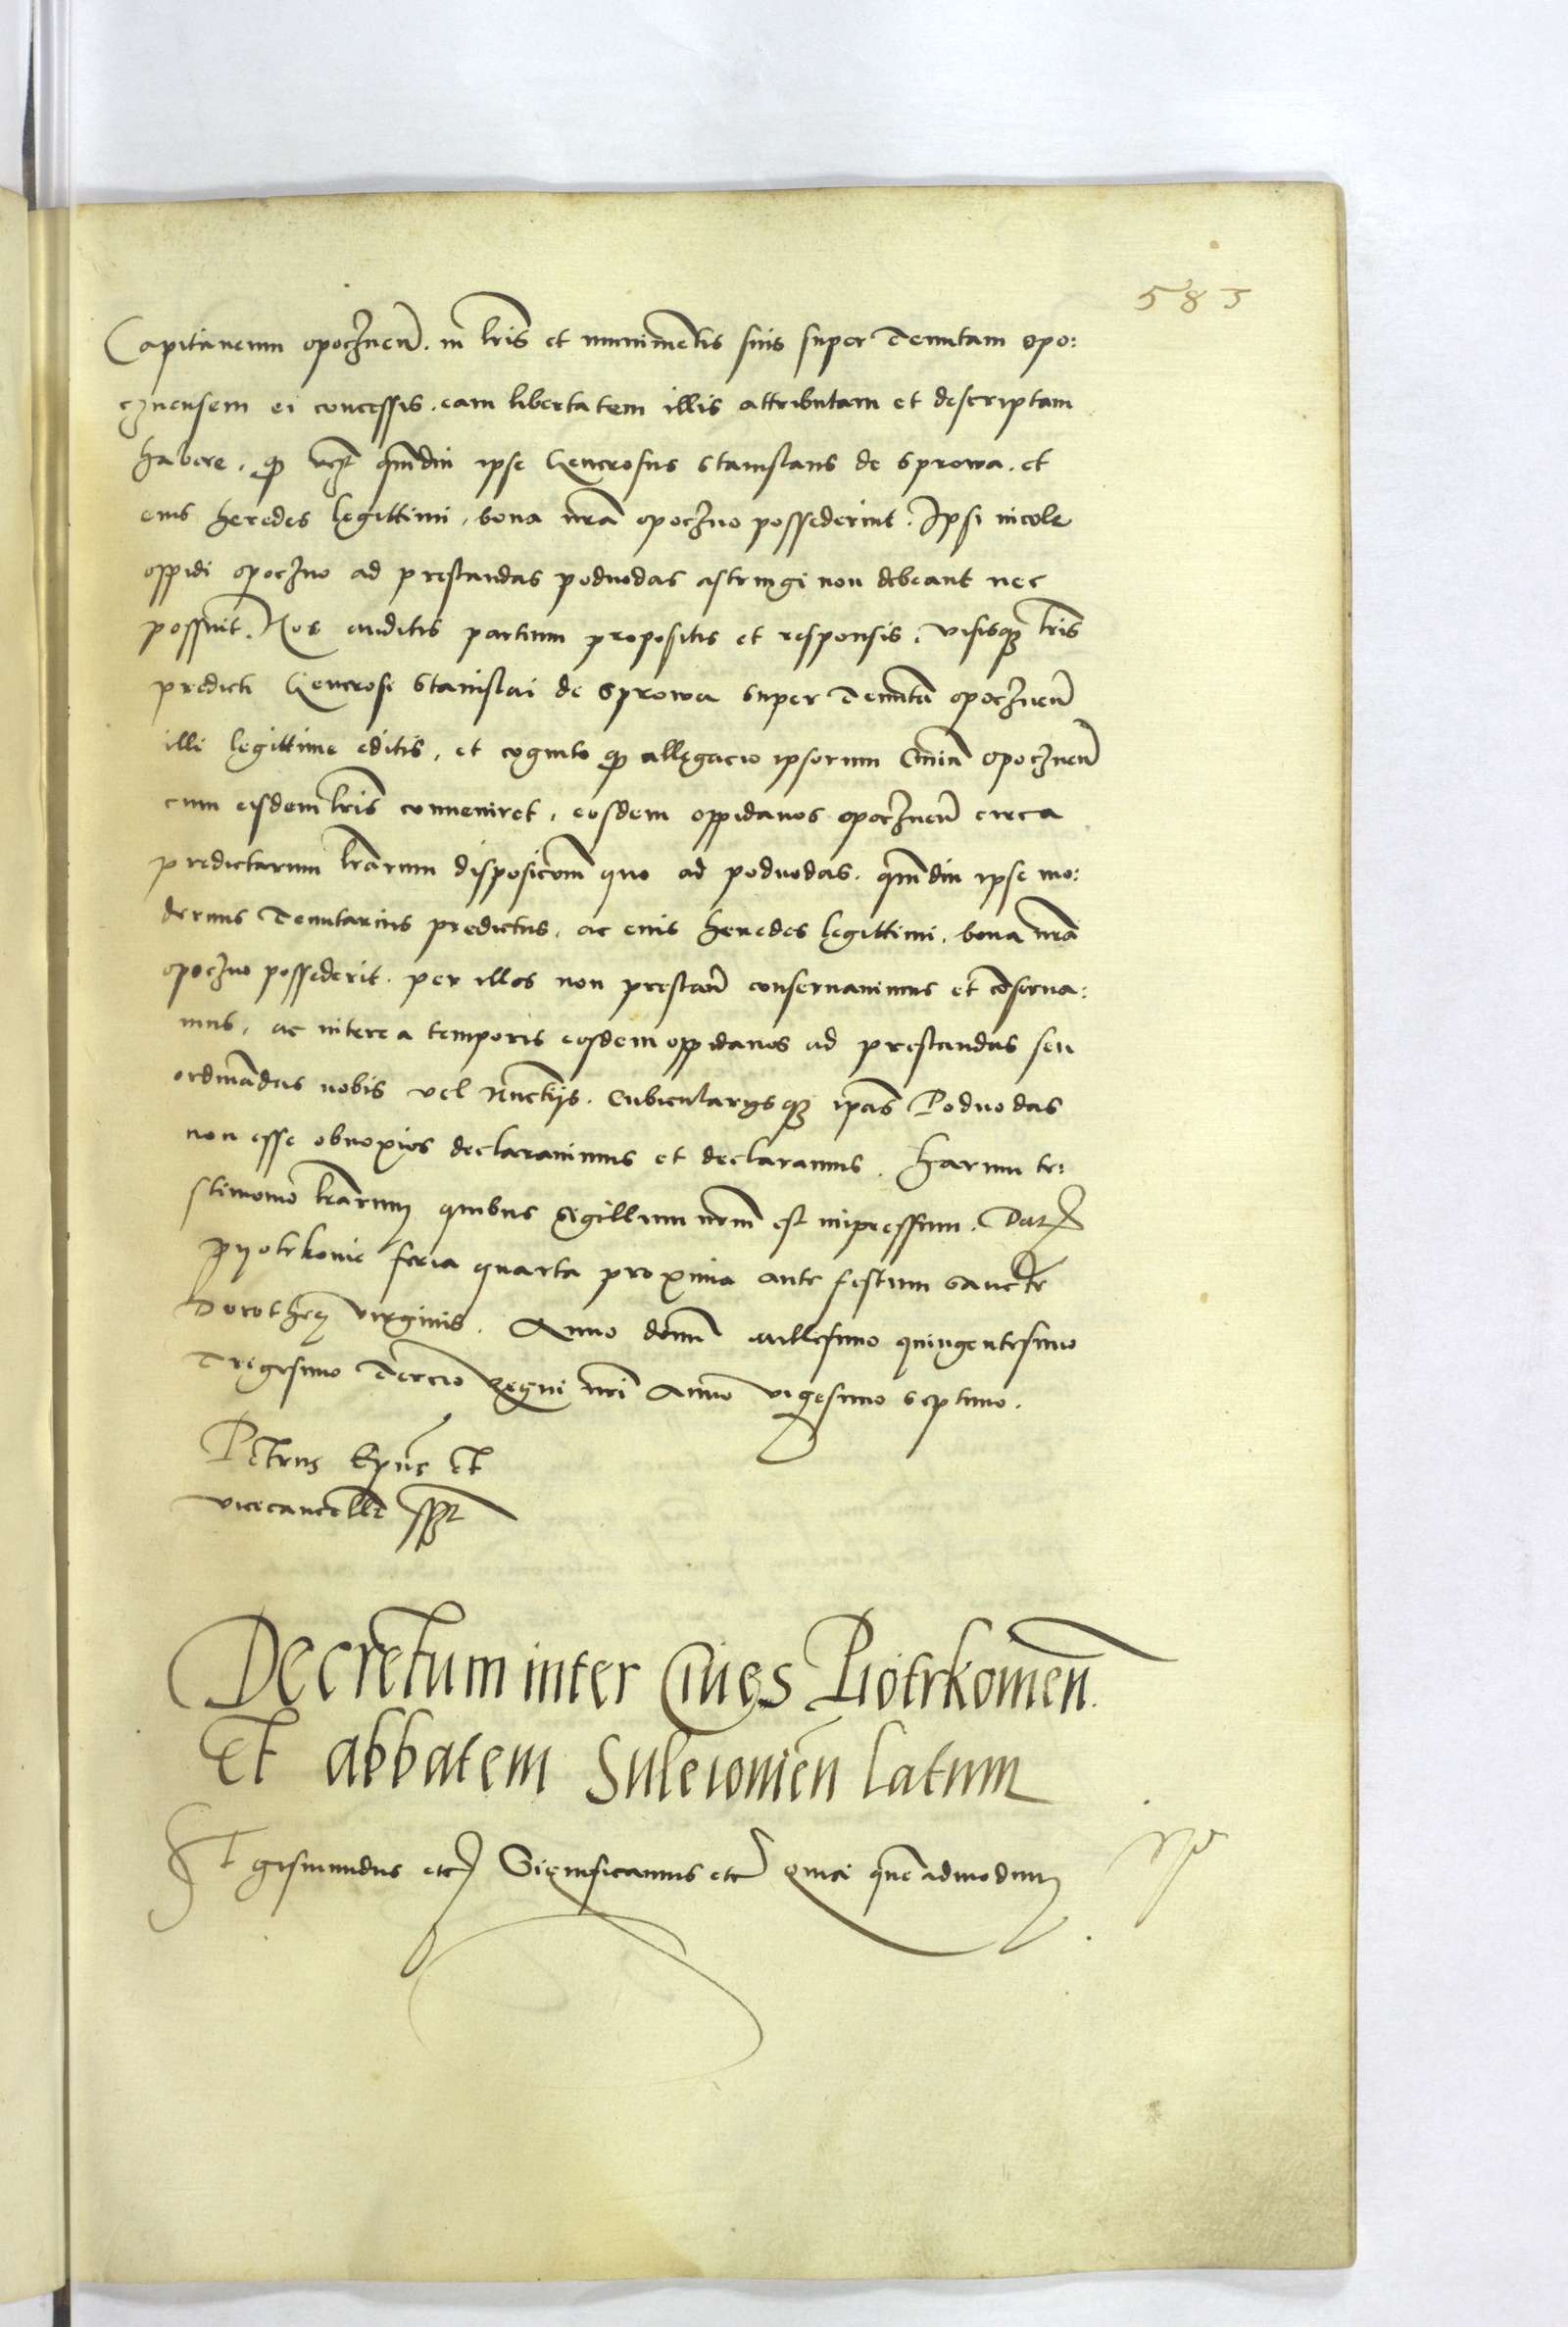 583
Capitaneum opocznen̄. in lr̄is et munimentis suis super Tenutam opo:
cznensem ei concessis. eam libertatem illis attributam et descriptam
habere. qp̄ q̄mdiu ipse Generosus Stanislaus de Sprowa. et
eius heredes legittimi, bona nr̄a opoczno possederint. Ipsi incole
oppidi opoczno ad prestandas podwodas astringi non debeant nec
possunt. Nos auditis partium propositis et responsis. visisqȝ lr̄is
predicti Generosi Stanislai de Sprowa super Tenutā opocznen̄
illi legittime editis, et cognito qp̄ allegacio ipsorum Civiū opocznen̄
cum eisdem lr̄is conveniret, eosdem oppidanos opocznen̄ circa
predictarum lr̄arum disposicōm quo ad podwodas. q̄mdiu ipse mo:
dernus Tenutarius predictus, ac eius heredes legittimi. bona nr̄a
opoczno possederit. per illos non prestan̄ conservavimus et cōserva:
mus, ac interea temporis eosdem oppidanos ad prestandas seu
ordinādas nobis vel Nunctijs. Cubicularijsqȝ ip̄as Podwodas
non esse obnoxios declaravimus et declaramus. Harum te:
stimonio lr̄arum quibus sigillum nr̄m est impressum. Dat
Pyotrkovie feria quarta proxima ante festum Sancte
Dorotheę virginis. Anno domī millesimo quingentesimo
Trigesimo Tercio Regni nr̄i Anno vigesimo septimo.
Petrus Ep̄us et
vicecancell̄r sspt̄
Decretum inter Cives Piotrkovien̄.
Et abbatem Suleiovien̄ latum
Sigismundus etc Significamus etc quia quēadmodum